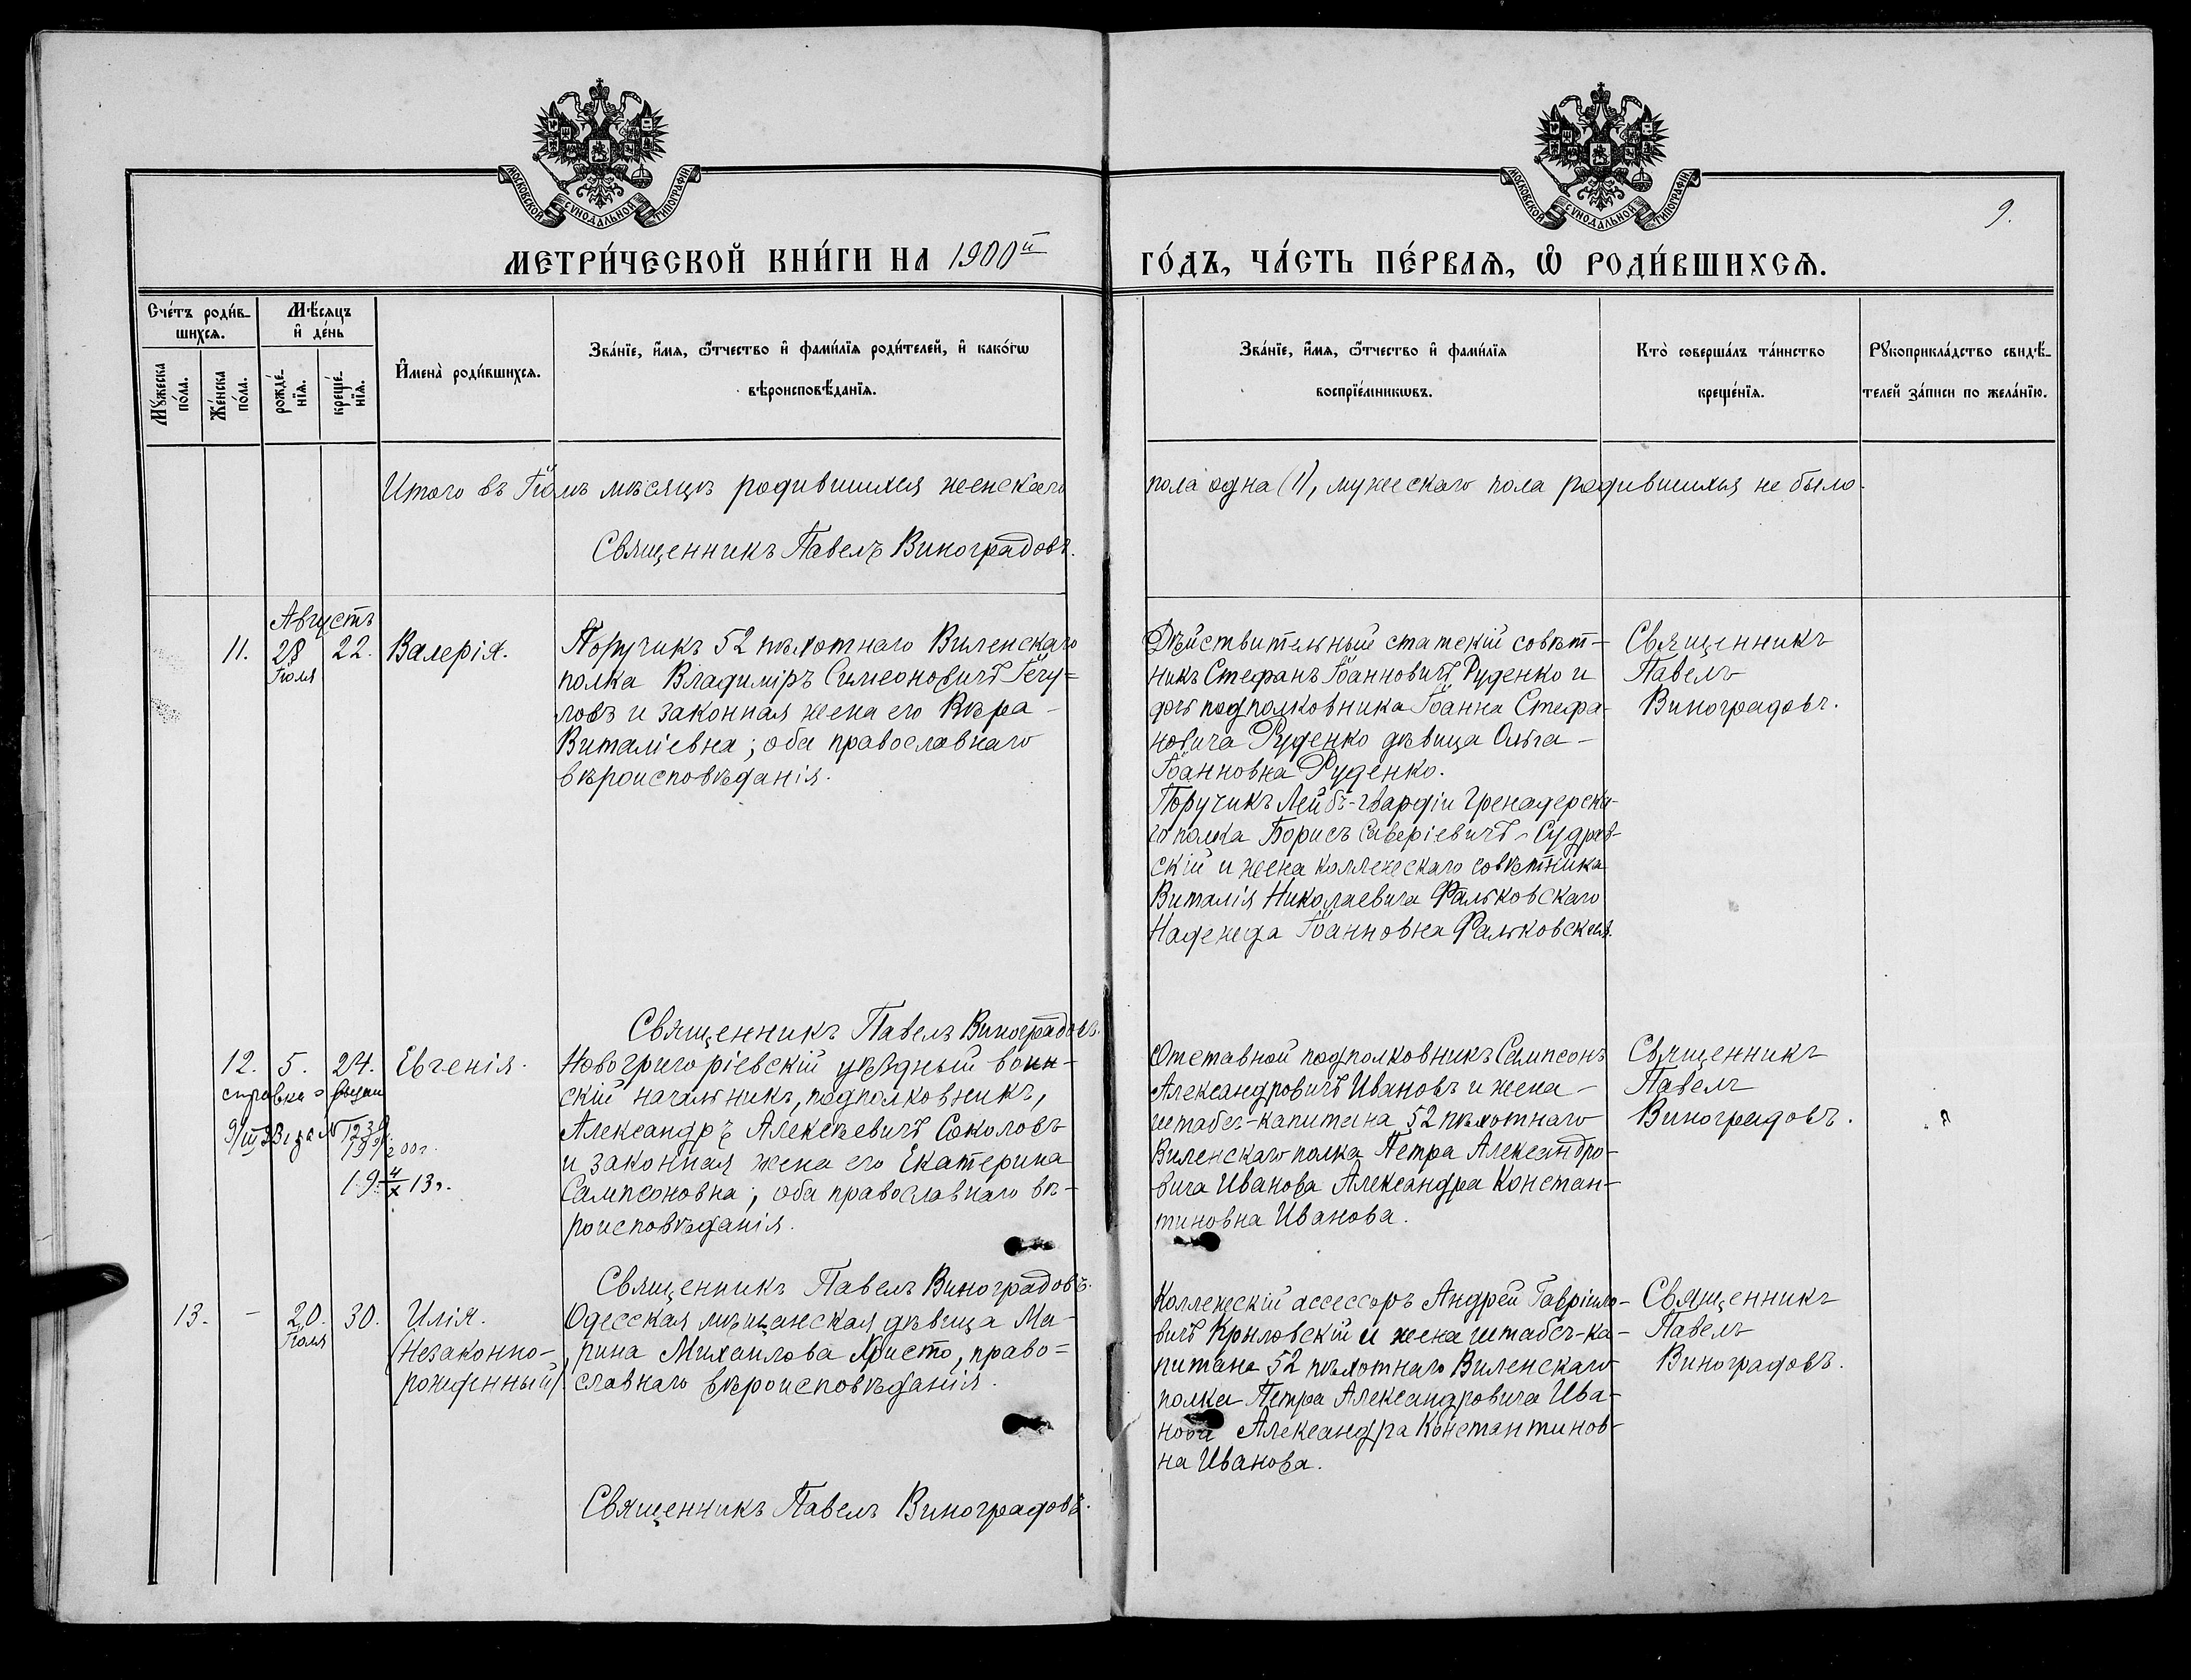 МОСКОВСКОЙ СѴНОДАЛЬНОЙ ТИПОГРАФІИ
МОСКОВСКОЙ СѴНОДАЛЬНОЙ ТИПОГРАФІИ
9.
МЕТРИ́ЧЕСКОЙ КНИ́ГИ НА 1900й ГО́ДЪ, ЧА́СТЬ ПЕ́РВАѦ, Ѡ҆ РОДИ́ВШИХСѦ.
Сче́тъ роди́в-
шихсѧ.
Мꙋ́жеска
по́ла.
Же́нска
по́ла.
Мѣ́сѧцъ
и҆ де́нь
рожде́-
нїѧ.
креще́-
нїѧ.
И҆мена̀ роди́вшихсѧ.
Зва́нїе, и҆́мѧ, ѻ҆́тчество и҆ фами́лїѧ роди́телей, и҆ како́гѡ
вѣроисповѣ́данїѧ.
Зва́нїе, и҆́мѧ, ѻ҆́тчество и҆ фами́лїѧ
воспрїе́мникѡвъ.
Кто̀ соверша́лъ та́инство
креще́нїѧ.
Рꙋкоприкла́дство свидѣ́-
телей за́писи по жела́нїю.
Итого въ Іюлѣ мѣсяцѣ родившихся женскаго пола одна (1), мужескаго пола родившихся не было.
Священникъ Павелъ Виноградовъ.
Августъ
11. 28 Іюля 22. Валерія.
Поручикъ 52 пѣхотнаго Виленскаго
полка Владиміръ Симеоновичъ Гегу=
ловъ и законная жена его Вѣра
Виталіевна; оба православнаго
вѣроисповѣданія.
Дѣйствительный статскій совѣт-
никъ Стефанъ Іоанновичъ Руденко и
дочь подполковника Іоанна Стефа-
новича Руденко дѣвица Ольга
Іоанновна Руденко.
Поручикъ Лейбъ-гвардіи Гренадерска-
го полка Борисъ Саверіевичъ Судров-
скій и жена коллежскаго совѣтника
Виталія Николаевича Фальковскаго
Надежда Іоанновна Фальковская.
Священникъ
Павелъ
Виноградовъ.
Священникъ Павелъ Виноградовъ.
12. 5. 24. Евгенія.
справка выдан
9/III за №
19 4/X 13г.
Новогригоріевскій уѣздный воин-
скій начальникъ, подполковникъ,
Александръ Алексѣевичъ Соколовъ
и законная жена его Екатерина
Сампсоновна; оба православнаго вѣ-
роисповѣданія.
Отставной подполковникъ Сампсонъ
Александровичъ Ивановъ и жена
штабсъ-капитана 52 пѣхотнаго
Виленскаго полка Петра Александро-
вича Иванова Александра Констан-
тиновна Иванова.
Священникъ
Павелъ
Виноградовъ.
Священникъ Павелъ Виноградовъ.
13. - 20. Іюля 30. Илія.
(Незаконно-
рожденный)
Одесская мѣщанская дѣвица Ма-
рина Михаилова Христо, право=
славнаго вѣроисповѣданія.
Коллежскій ассессоръ Андрей Гавріило-
вичъ Крыловскій и жена штабсъ-ка-
питана 52 пѣхотнаго Виленскаго
полка Петра Александровича Ива-
нова Александра Константинов-
на Иванова.
Священникъ
Павелъ
Виноградовъ.
Священникъ Павелъ Виноградовъ.